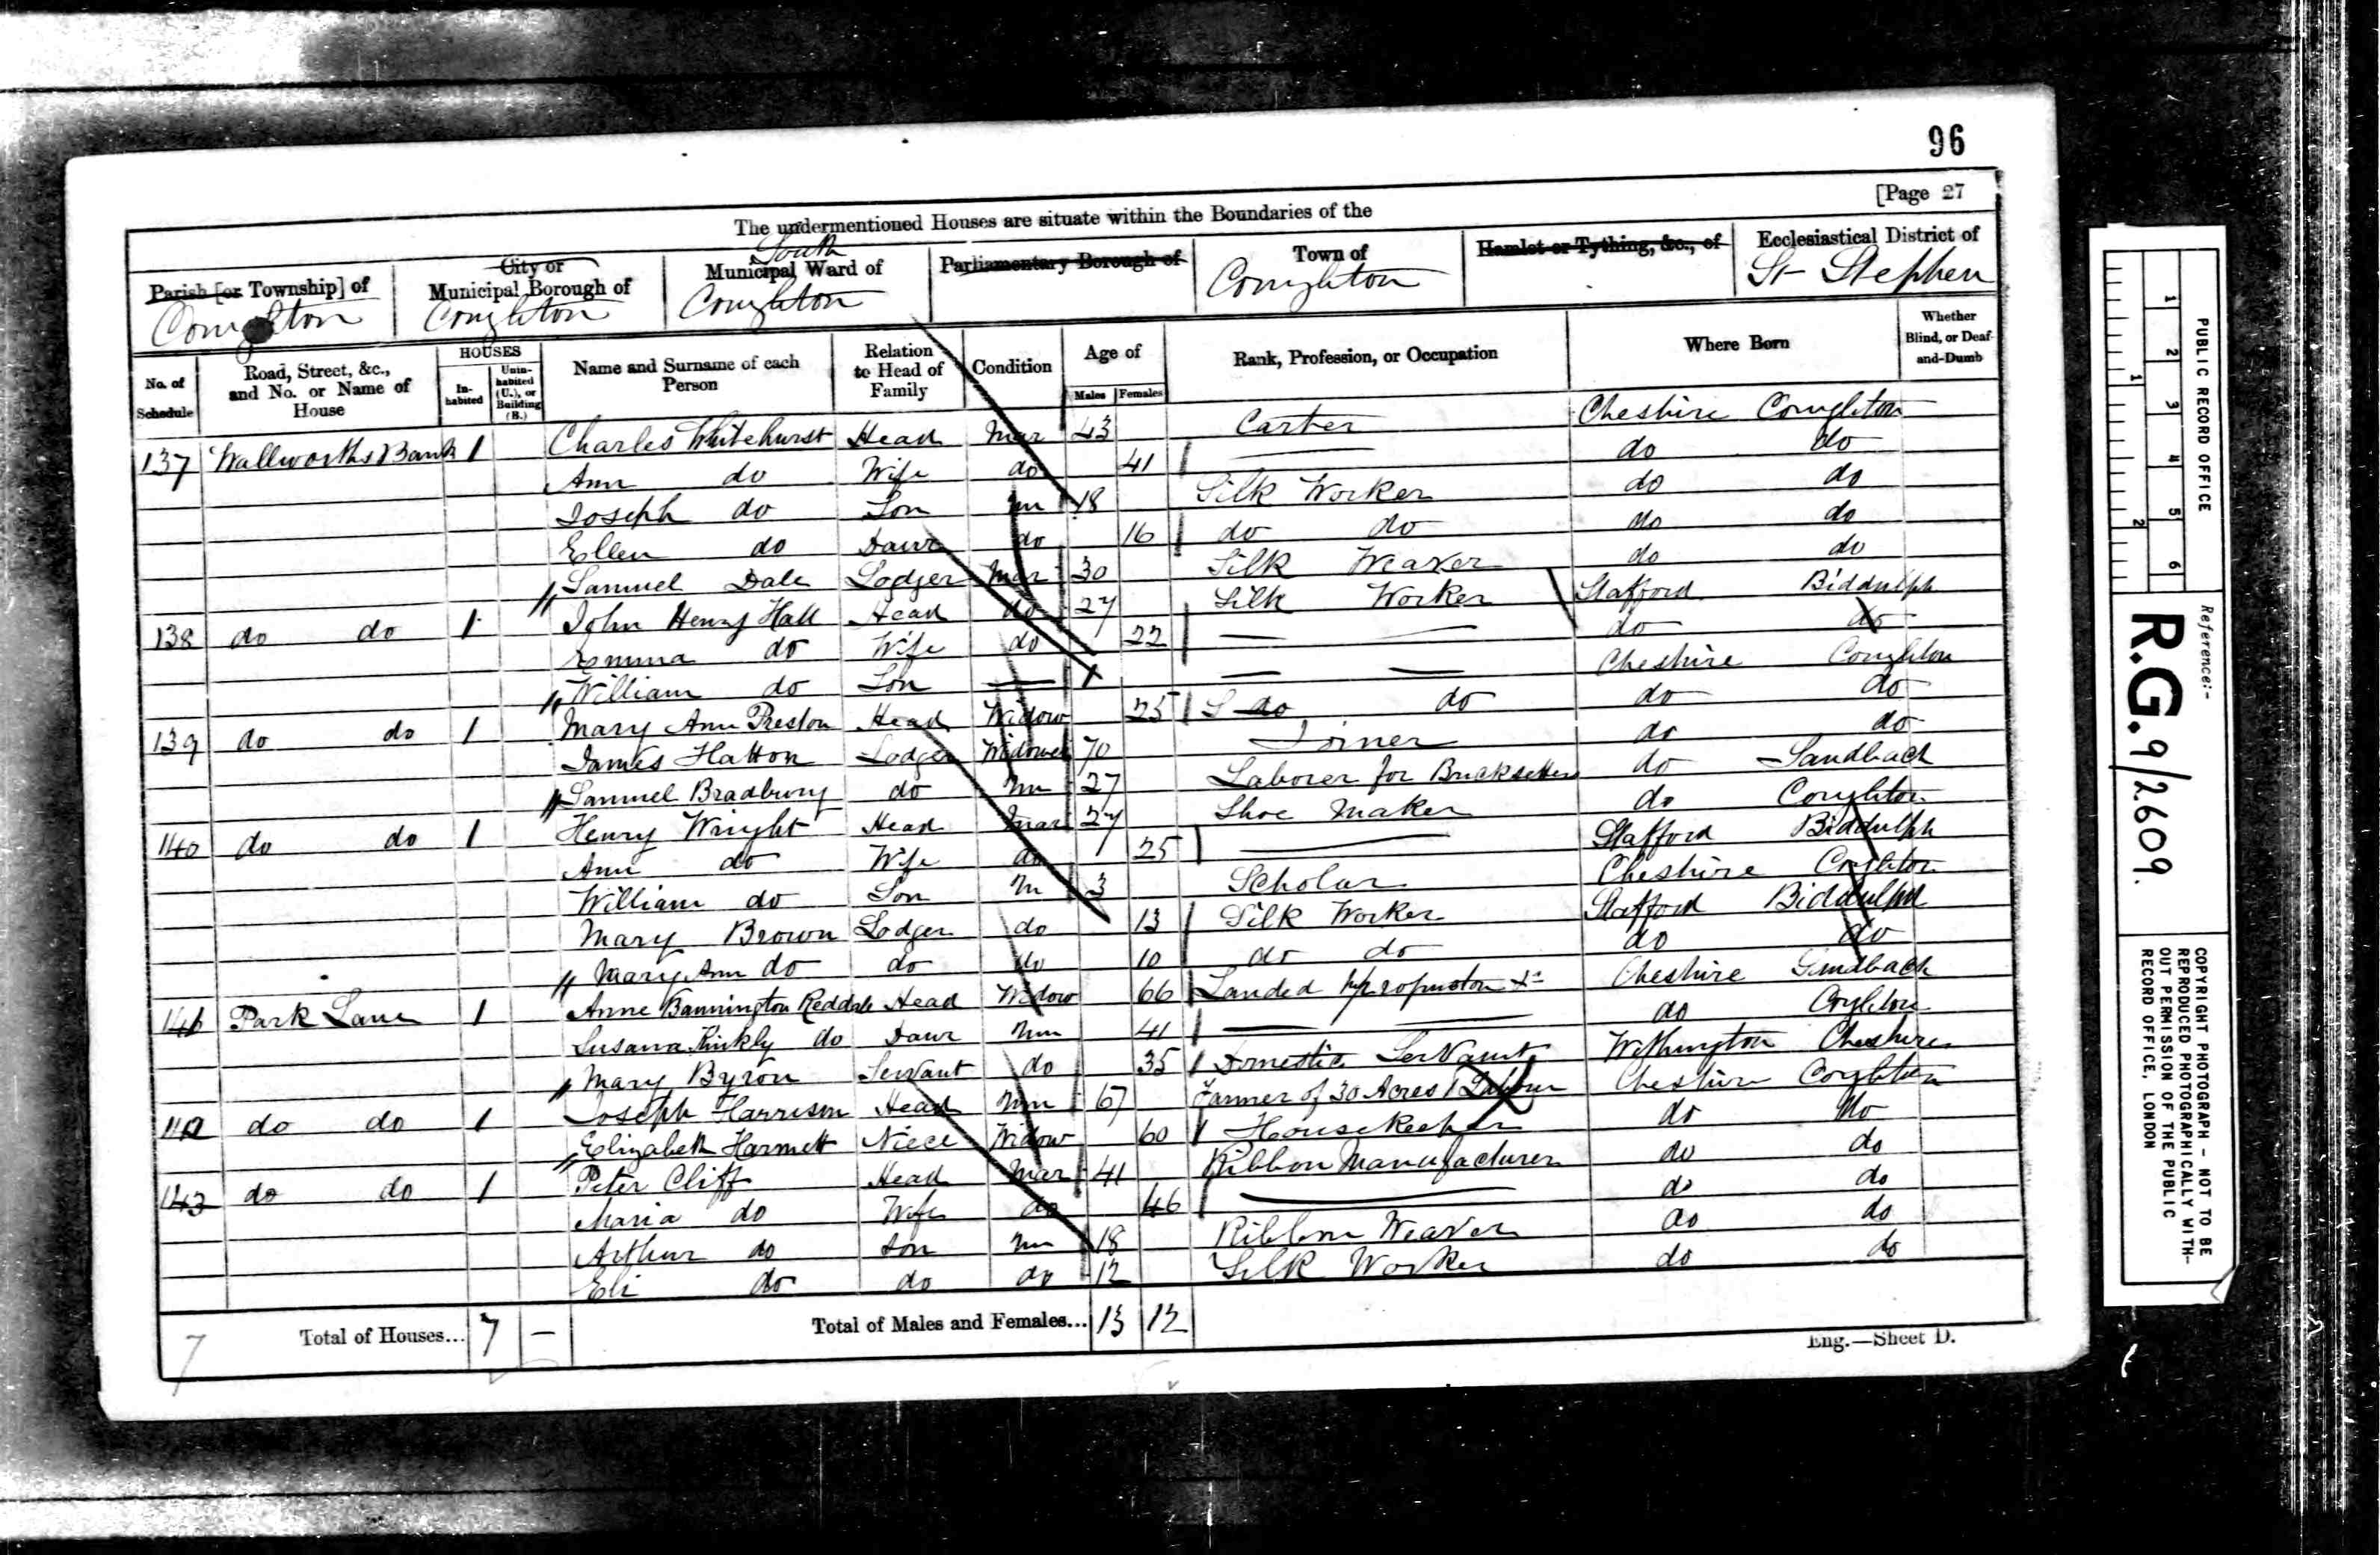 96
[Page 27
The undermentioned Houses are situate within the Boundaries of the
Parish [or Township] of
City or Municipal Borough of
South
Municipal Ward of
Parliamentary Borough of
Town of
Hamlet or Tything, &c., of
Ecclesiastical District of
Congleton Congleton Congleton Congleton St Stephen
No. of Schedule
Road, Street, &c., and No. or Name of House
HOUSES
In-habited
Unin-habited (U.), or Building (B.)
Name and Surname of each Person
Relation to Head of Family
Condition
Age of
Males Females
Rank, Profession, or Occupation
Where Born
Whether Blind, or Deaf-and-Dumb
137 Wallworths Bank 1 Charles Whitehurst Head Mar 43 Carter Cheshire Congleton
Ann do Wife do 41 do do
Joseph do Son Un 18 Silk Worker do do
Ellen do Daur do 16 do do do do
Samuel Dale Lodger Mar 30 Silk Weaver do do
138 do do 1 John Henry Hall Head do 27 Silk Worker Stafford Biddulph
Emma do Wife do 22 do do
William do Son 1 Cheshire Congleton
139 do do 1 Mary Ann Preston Head Widow 25 S do do do do
James Hatton Lodger Widower 70 Joiner do do
Samuel Bradbury do Un 27 Laborer for Bricksetter do Sandbach
140 do do 1 Henry Wright Head Mar 27 Shoe Maker do Congleton
Ann do Wife do 25 Stafford Biddulph
William do Son Un 3 Scholar Cheshire Congleton
Mary Brown Lodger do 13 Silk Worker Stafford Biddulph
Mary Ann do do do 10 do do do do
141 Park Lane 1 Anne Head Widow 66 Landed Cheshire Sandbach
Susana do Daur Un 41 do Congleton
Mary Byron Servant do 35 Domestic Servant Withington Cheshire
142 do do 1 Joseph Harrison Head Un 67 Farmer of 30 Acres 1 Labour Cheshire Congleton
Elizabeth Niece Widow 60 Housekeeper do do
143 do do 1 Peter Cliff Head Mar 41 Ribbon Manufacturer do do
Maria do Wife do 46 do do
Arthur do Son Un 18 Ribbon Weaver do do
Eli do do do 12 Silk Worker do do
7 Total of Houses... 7 — Total of Males and Females... 13 12
Eng.—Sheet D.
PUBLIC RECORD OFFICE
1 2 3 4 5 6
1 2
Reference:-
R.G. 9/2609.
COPYRIGHT PHOTOGRAPH - NOT TO BE
REPRODUCED PHOTOGRAPHICALLY WITH-
OUT PERMISSION OF THE PUBLIC
RECORD OFFICE, LONDON